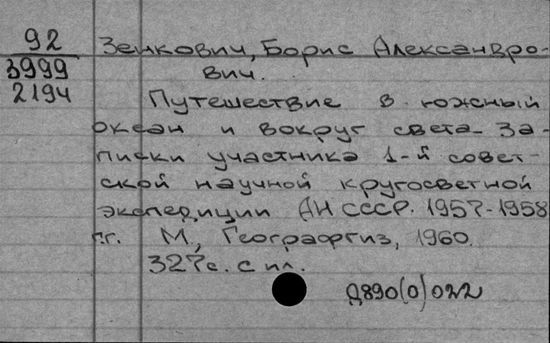 92
3999
2194
Зенкович, Борис Александро-
вич.
Путешествие в южный
океан и вокруг света. За-
писки участника 1-й совет-
ской научной кругосветной
экспедиции АН СССР. 1957-1958
г.г. М., Географгиз, 1960.
327с. с ил.
Д890(0)022